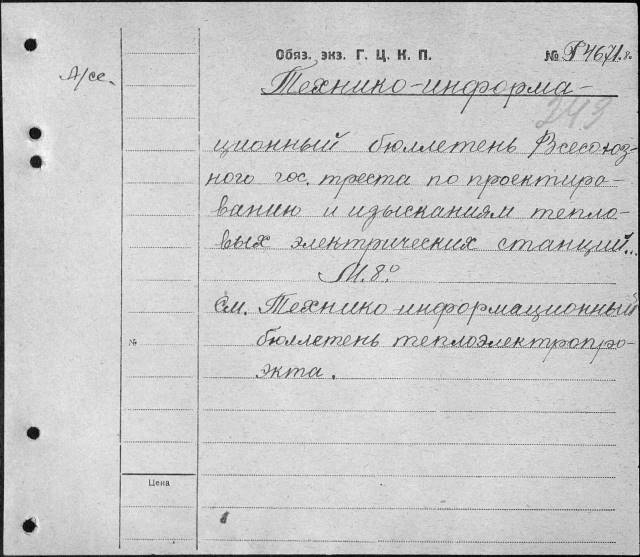 Обяз. экз. Г. Ц. К. П.
№ Р4671.8.
А/сс.
Технико-информа-
349
ционный бюллетень Всесоюз-
ного гос. треста по проектиро-
ванию и изысканиям тепло-
вых электрических станций...
М. 8º
См. Технико-информационный
бюллетень теплоэлектропро-
экта.
№
Цена